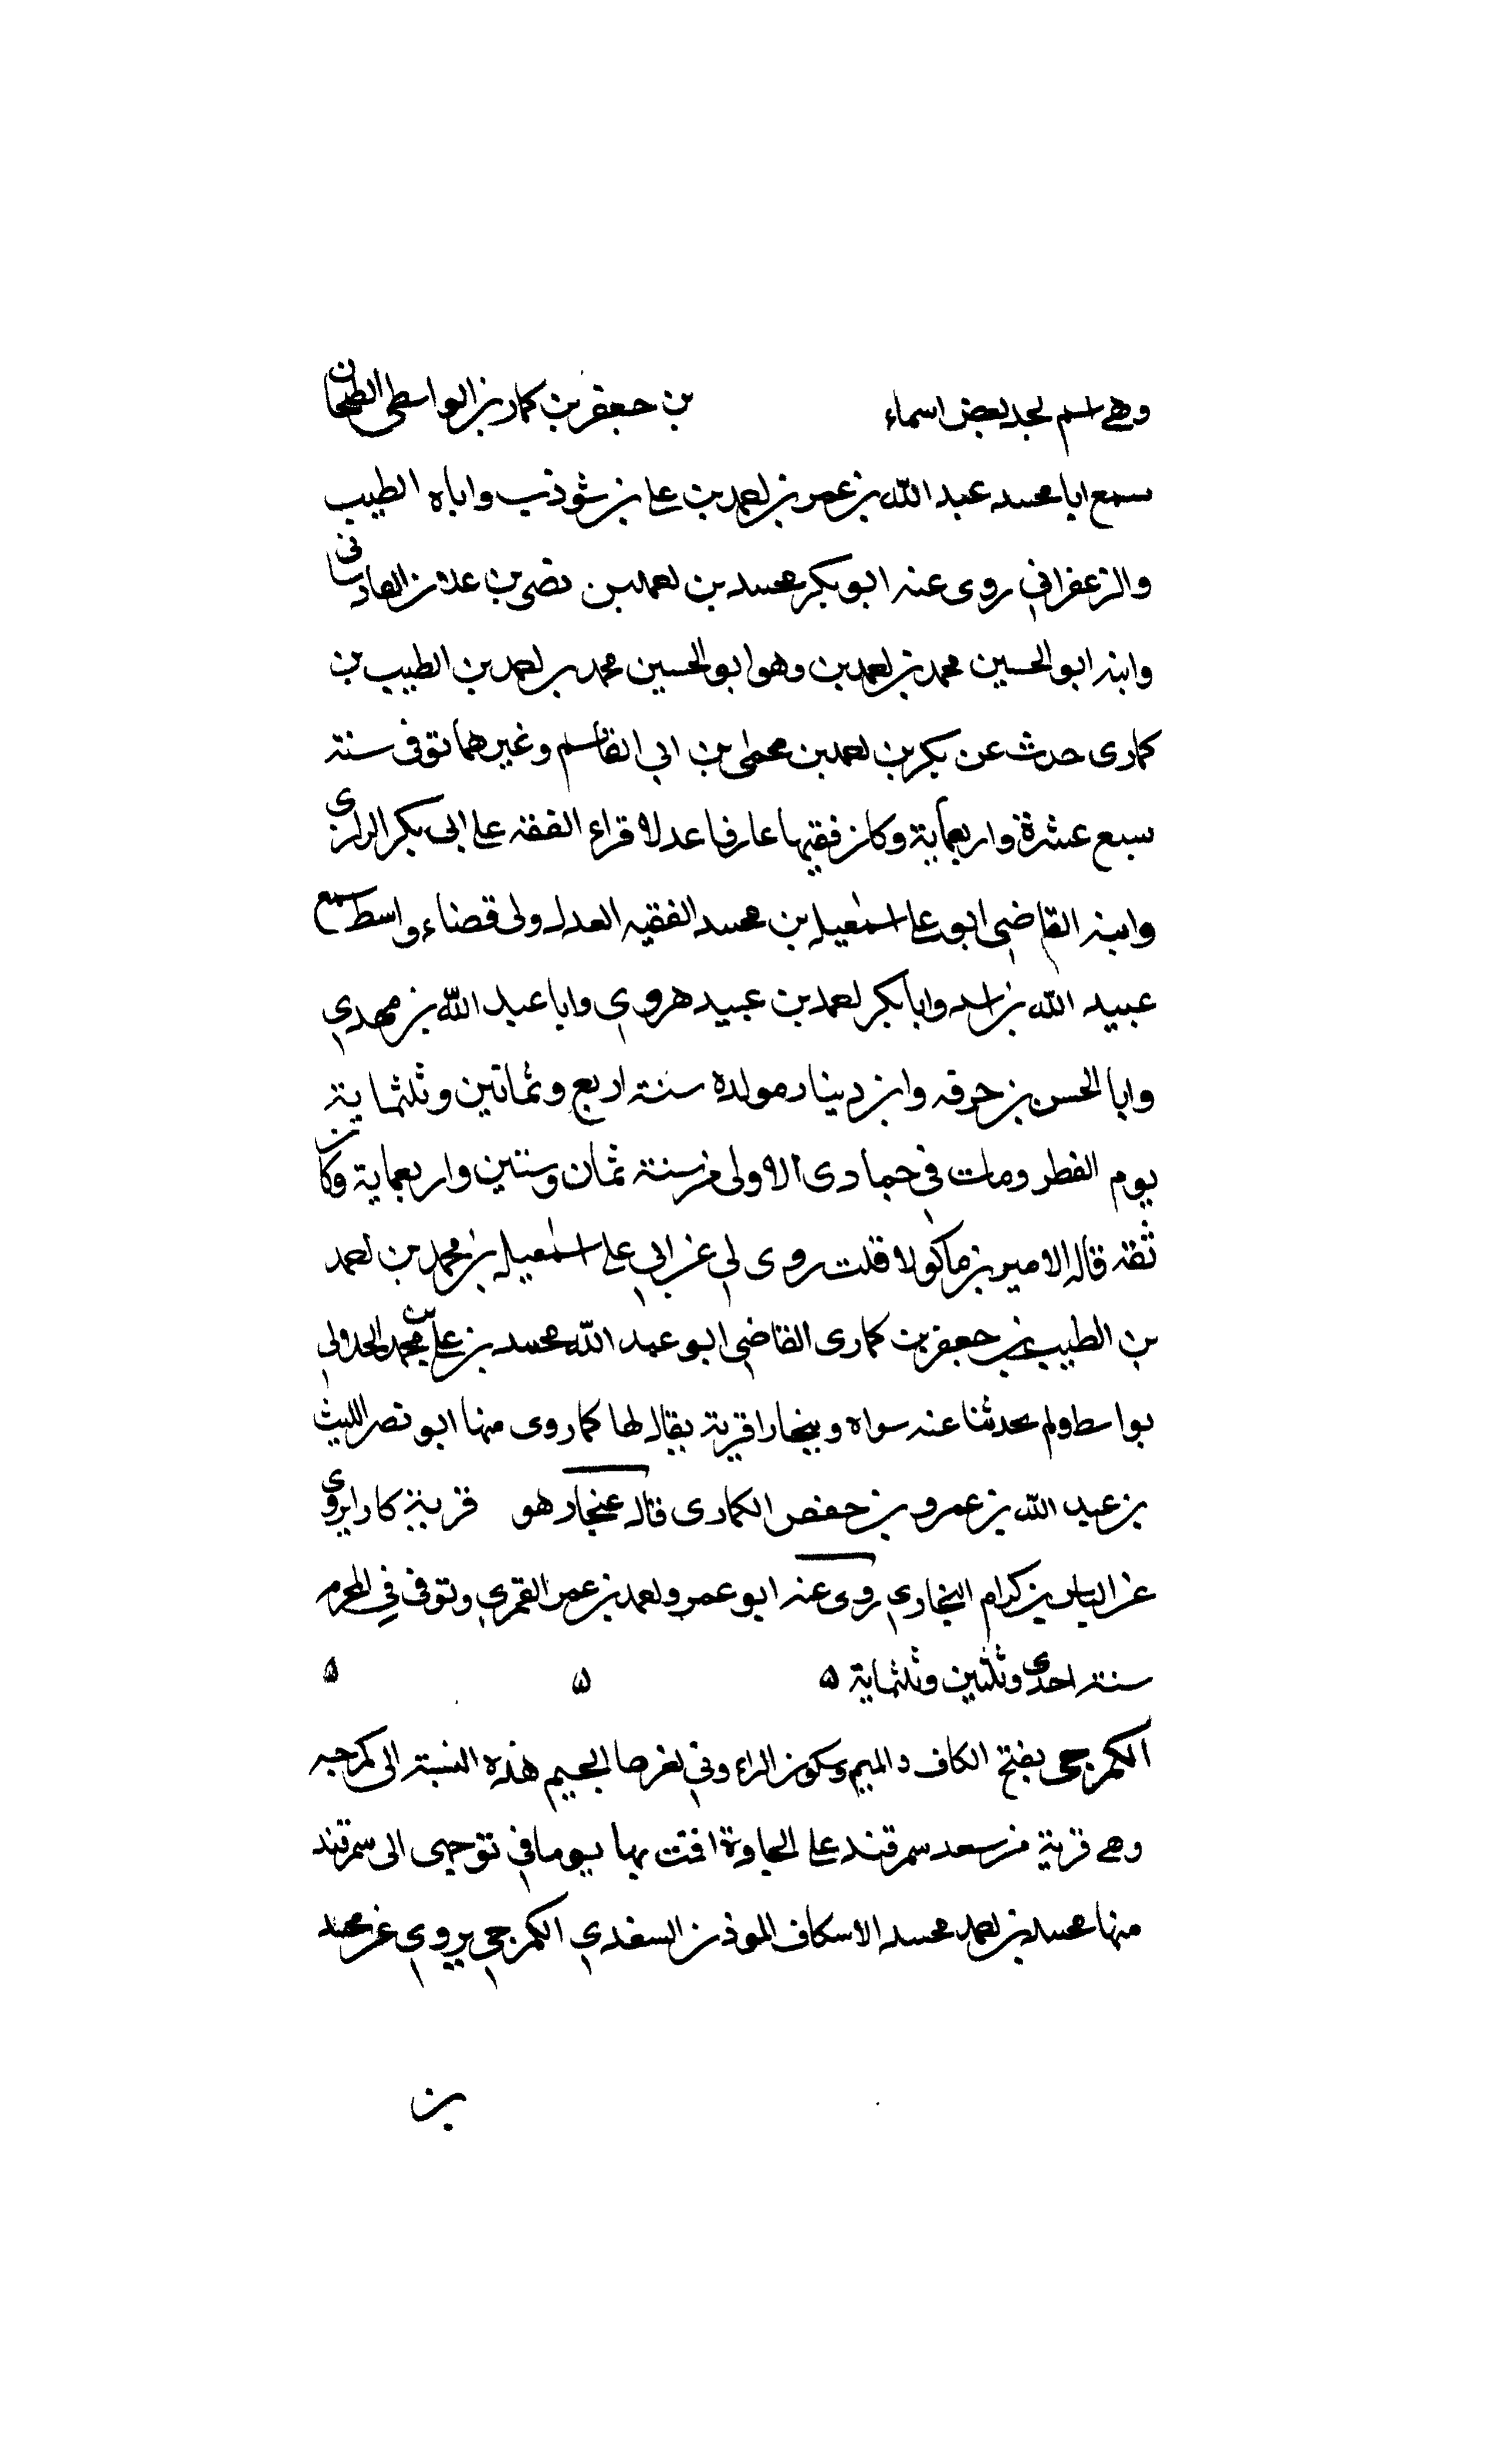 وهى اسم لجد بعض اسماء بن جعفر بن كمارى الواسطى الطحان
سمع ابا محمد عبد الله بن عمر بن احمد بن على بن شوذب واباه الطيب
والزعفراني روى عنه ابو بكر محمد بن احمد بن
وابنه ابو الحسين محمد بن احمد بن وهو ابو الحسين محمد بن احمد بن الطيب بن
كمارى حدث عن بكر بن احمد بن محمى بن ابي القاسم وغيرهما توفى سنة
سبع عشرة واربعماية وكان فقيها عارفا عدلا قراء الفقه على ابى بكر الرازى
وابنه القاضي ابو على اسمعيل بن محمد الفقيه العدل ولى قضاء واسط سمع
عبيد الله بن اسد وابا بكر احمد بن عبيد هروي وابا عبد الله بن مهدي
وابا الحسن بن حزفه وابن دينار مولده سنة اربع وثمانين وثلثماية
يوم الفطر ومات في جمادى الاولى من سنة ثمان وستين واربعماية وكان
ثقة قاله الامير بن ماكولا قلت روى لي عن ابي على اسمعيل بن محمد بن احمد
بن الطيب بن جعفر بن كمارى القاضي ابو عبد الله محمد بن على بن محمد الجلابي
بواسط ولم يحدثنا عنه سواه وببخارا قرية يقال لها كمارى منها ابو نصر الليث
بن عبد الله بن عمرو بن حفص الكمارى قاله غنجار هو قرية كمارا يروى
عن الياس بن كرام البخاري روى عنه ابو عمرو احمد بن عمر القمري وتوفى في المحرم
سنة احدى وثلثين وثلثماية ه ه ه
الكمرجى بفتح الكاف والميم وسكون الراء وفي اخرها الجيم هذه النسبة الى كمرجه
وهى قرية من سعد سمرقند على الجادة اقمت بها يوما في توجهى الى سمرقند
منها محمد بن احمد محمد الاسكاف الموذن السغدي الكمرجي يروي عن محمد
بن